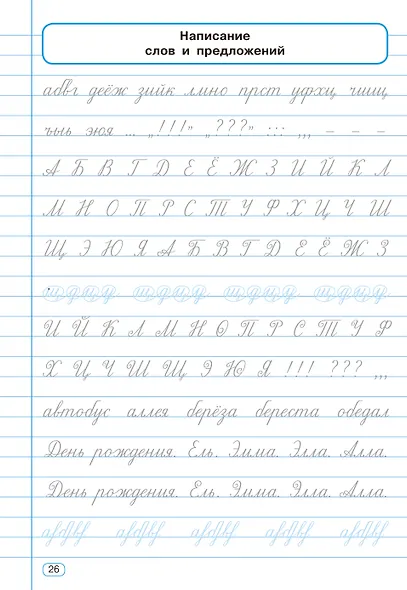 Написание
слов и предложений
абвг деёж зийк лмно прст уфхц чшщ
ъыь эюя ... „!!!” „???” ::: ,,, – – –
А Б В Г Д Е Ё Ж З И Й К Л
М Н О П Р С Т У Ф Х Ц Ч Ш
Щ Э Ю Я А Б В Г Д Е Ё Ж З
И Й К Л М Н О П Р С Т У Ф
Х Ц Ч Ш Щ Э Ю Я !!! ??? ,,,
автобус аллея берёза береста обедал
День рождения. Ель. Эмма. Элла. Алла.
День рождения. Ель. Эмма. Элла. Алла.
26